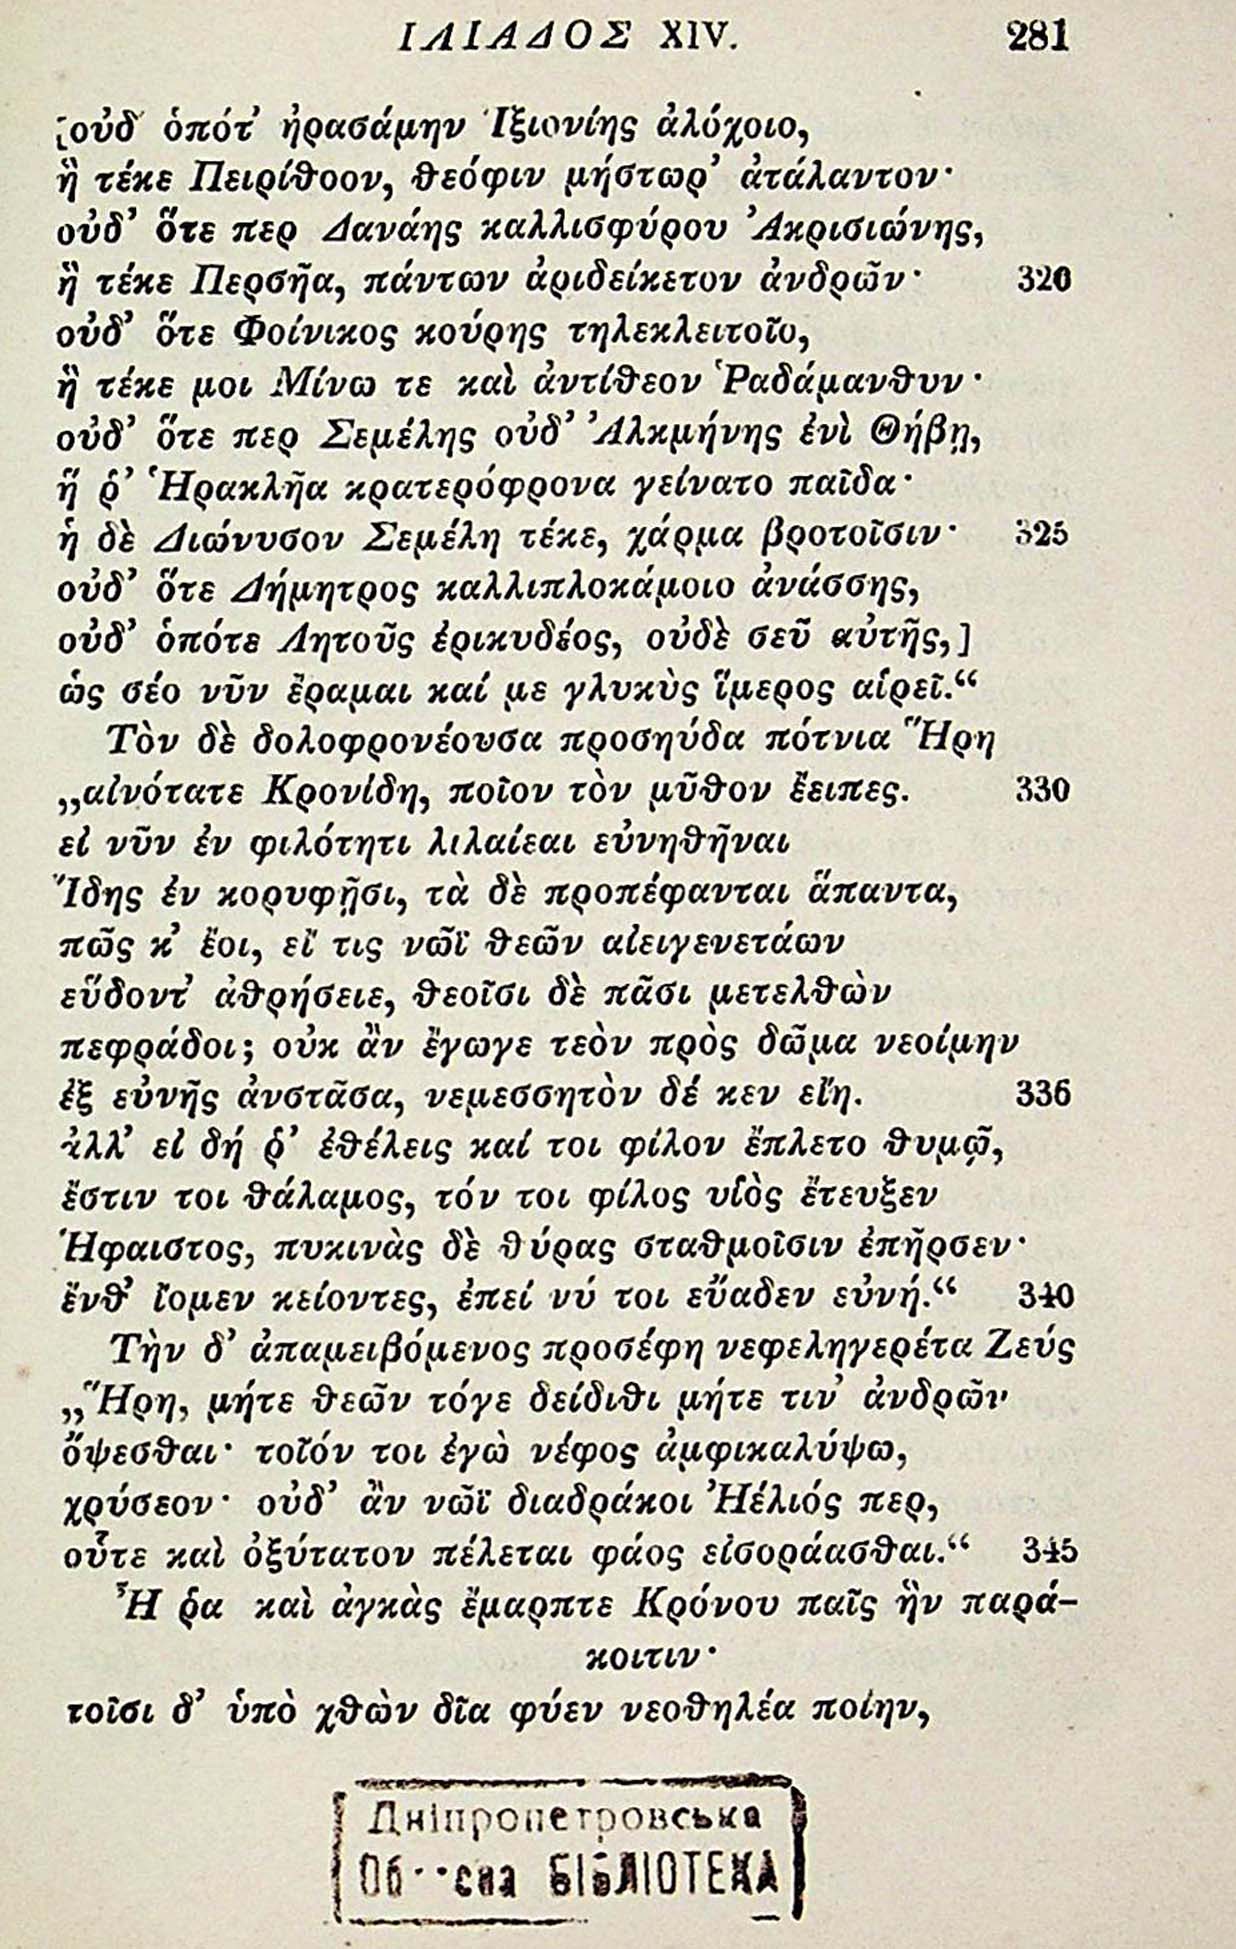 ΙΛΙΑΔΟΣ XIV. 281
[οὐδ’ ὁπότ’ ἠρασάμην Ἰξιονίης ἀλόχοιο,
ἣ τέκε Πειρίθοον, θεόφιν μήστωρ’ ἀτάλαντον·
οὐδ’ ὅτε περ Δανάης καλλισφύρου Ἀκρισιώνης,
ἣ τέκε Περσῆα, πάντων ἀριδείκετον ἀνδρῶν· 320
οὐδ’ ὅτε Φοίνικος κούρης τηλεκλειτοῖο,
ἣ τέκε μοι Μίνω τε καὶ ἀντίθεον Ῥαδάμανθυν·
οὐδ’ ὅτε περ Σεμέλης οὐδ’ Ἀλκμήνης ἐνὶ Θήβῃ,
ἥ ῥ’ Ἡρακλῆα κρατερόφρονα γείνατο παῖδα·
ἡ δὲ Διώνυσον Σεμέλη τέκε, χάρμα βροτοῖσιν· 325
οὐδ’ ὅτε Δήμητρος καλλιπλοκάμοιο ἀνάσσης,
οὐδ’ ὁπότε Λητοῦς ἐρικυδέος, οὐδὲ σεῦ αὐτῆς,]
ὡς σέο νῦν ἔραμαι καί με γλυκὺς ἵμερος αἱρεῖ.“
Τὸν δὲ δολοφρονέουσα προσηύδα πότνια Ἥρη
„αἰνότατε Κρονίδη, ποῖον τὸν μῦθον ἔειπες. 330
εἰ νῦν ἐν φιλότητι λιλαίεαι εὐνηθῆναι
Ἴδης ἐν κορυφῇσι, τὰ δὲ προπέφανται ἅπαντα,
πῶς κ’ ἔοι, εἴ τις νῶϊ θεῶν αἰειγενετάων
εὕδοντ’ ἀθρήσειε, θεοῖσι δὲ πᾶσι μετελθὼν
πεφράδοι; οὐκ ἂν ἔγωγε τεὸν πρὸς δῶμα νεοίμην
ἐξ εὐνῆς ἀνστᾶσα, νεμεσσητὸν δέ κεν εἴη. 336
ἀλλ’ εἰ δή ῥ’ ἐθέλεις καί τοι φίλον ἔπλετο θυμῷ,
ἔστιν τοι θάλαμος, τόν τοι φίλος υἱὸς ἔτευξεν
Ἥφαιστος, πυκινὰς δὲ θύρας σταθμοῖσιν ἐπῆρσεν·
ἔνθ’ ἴομεν κείοντες, ἐπεί νύ τοι εὔαδεν εὐνή.“ 340
Τὴν δ’ ἀπαμειβόμενος προσέφη νεφεληγερέτα Ζεύς
„Ἥρη, μήτε θεῶν τόγε δείδιθι μήτε τιν’ ἀνδρῶν
ὄψεσθαι· τοῖόν τοι ἐγὼ νέφος ἀμφικαλύψω,
χρύσεον· οὐδ’ ἂν νῶϊ διαδράκοι Ἠέλιός περ,
οὗτε καὶ ὀξύτατον πέλεται φάος εἰσοράασθαι.“ 345
Ἦ ῥα καὶ ἀγκὰς ἔμαρπτε Κρόνου παῖς ἣν παρά-
κοιτιν·
τοῖσι δ’ ὑπὸ χθὼν δῖα φύεν νεοθηλέα ποίην,
Дніпропетровська
БІБЛІОТЕКА